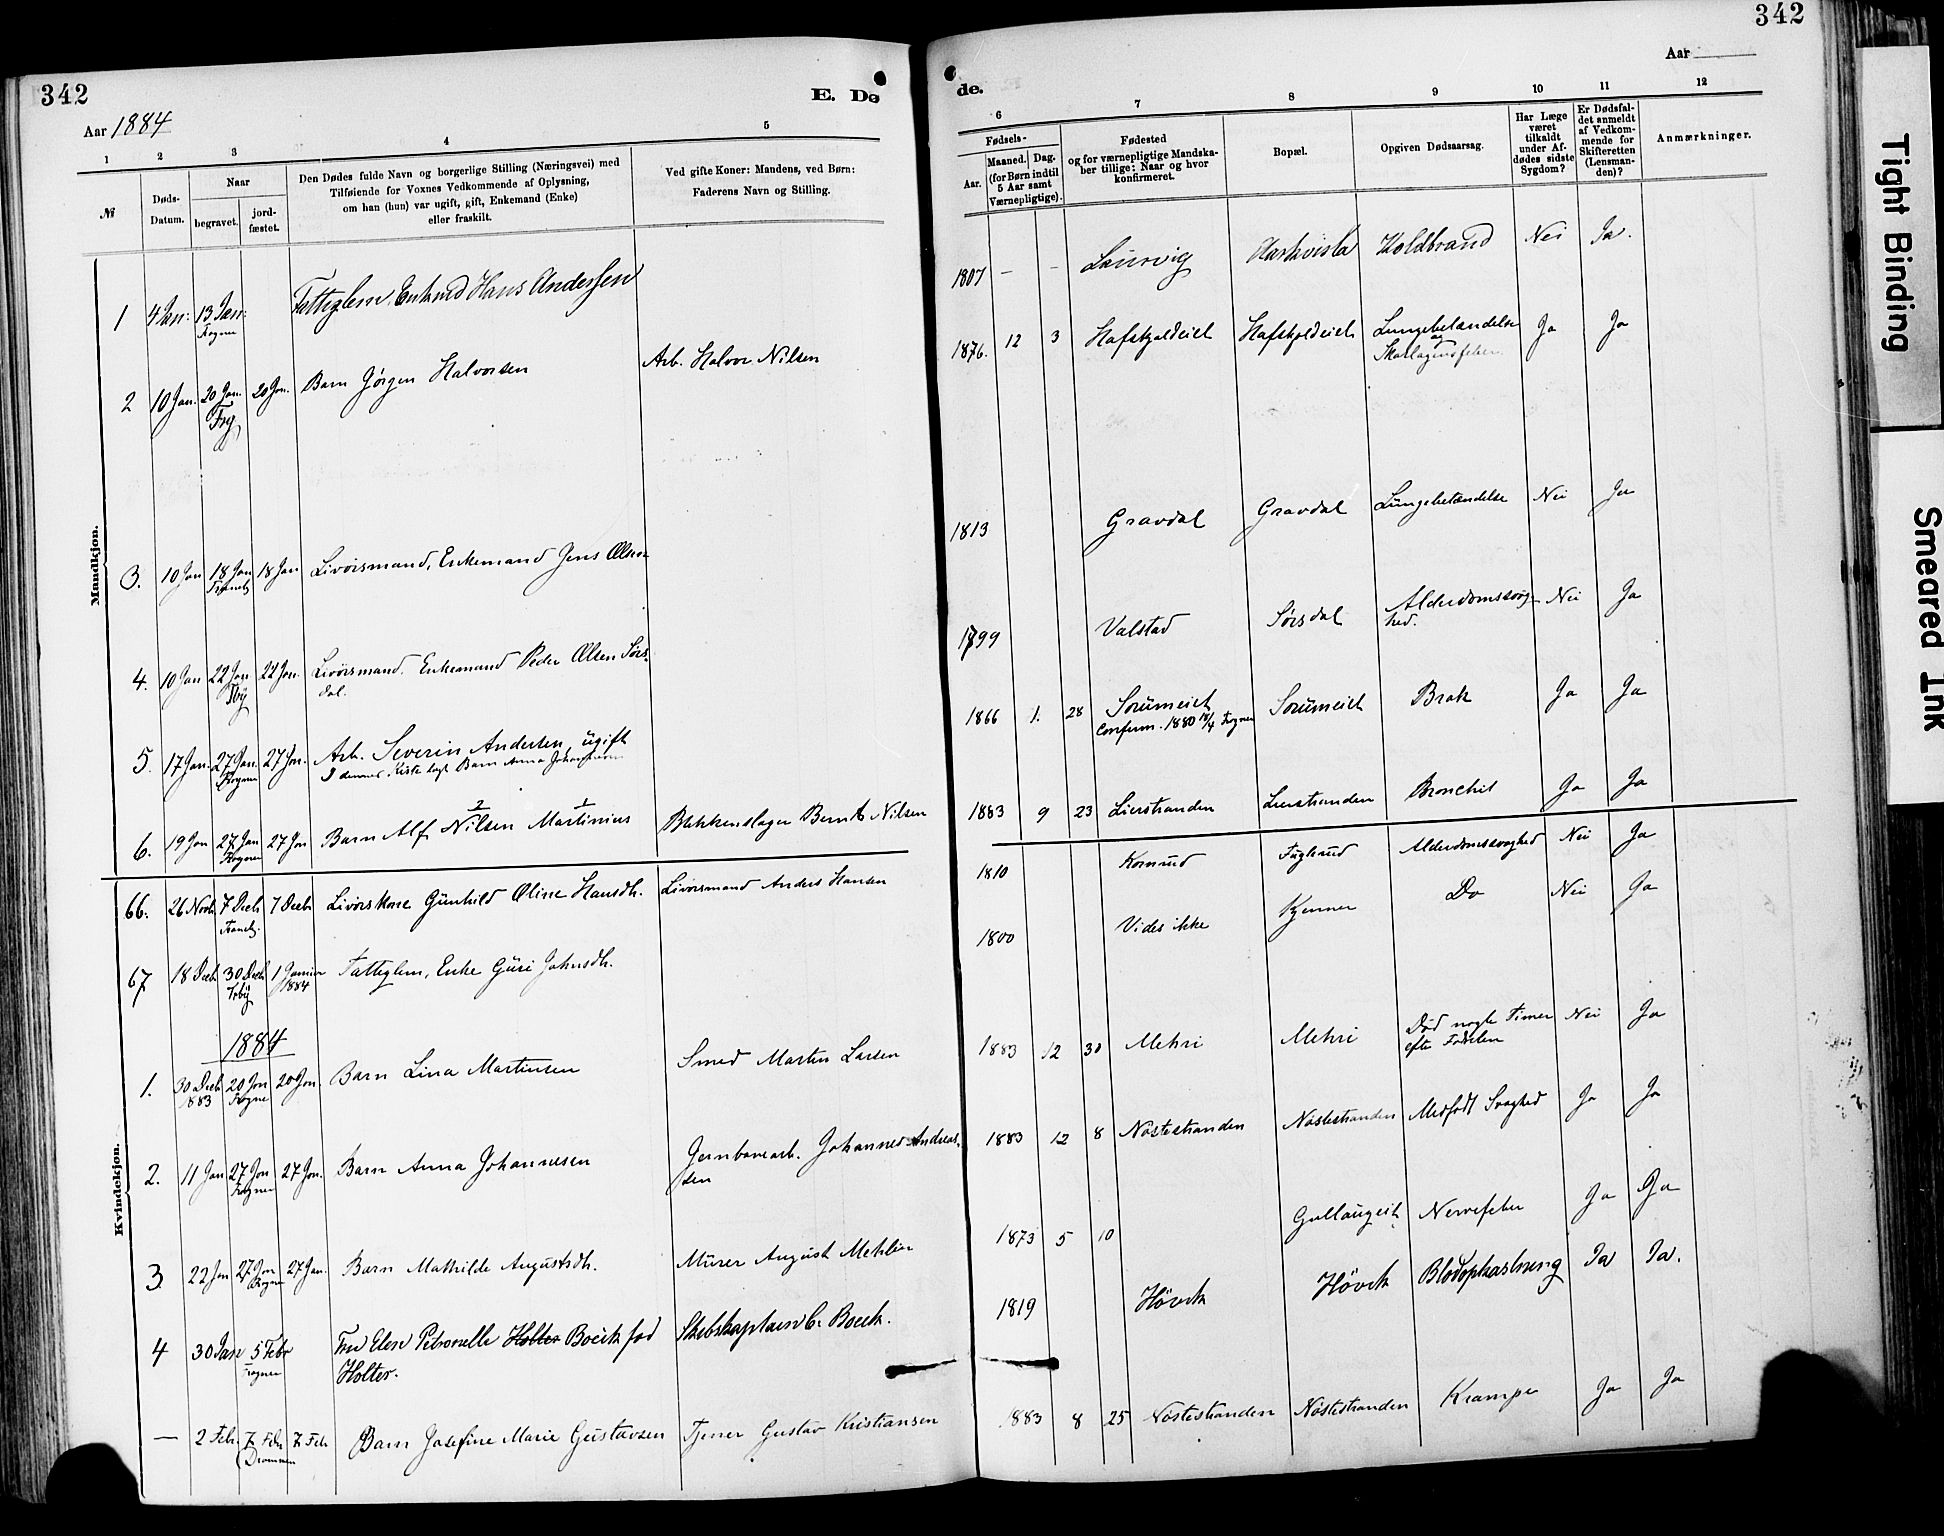 342
E. Dø
Aar 1884
1 2 3 4 5
№
Døds-Datum.
Naar
begravet.
jord-fæstet.
Den Dødes fulde Navn og borgerlige Stilling (Næringsvei) med
Tilføiende for Voxnes Vedkommende af Oplysning,
om han (hun) var ugift, gift, Enkemand (Enke)
eller fraskilt.
Ved gifte Koner: Mandens, ved Børn:
Faderens Navn og Stilling.
Mandkjøn.
1 4 Jan: 13 Jan: Fattiglem, Enkmd Hans Andersen
Frogner
2 10 Jan. 20 Jan. 20 Jan. Barn Jörgen Halvorsen Arb. Halvor Nilsen
3. 10 Jan 18 Jan 18 Jan Livörsmand, Enkemand Jens Olsen
4. 10 Jan 22 Jan 22 Jan. Livörsmand. Enkemand Peder Olsen Sörs-
dal.
5. 17 Jan. 27 Jan. 27 Jan. Arb. Severin Andersen, ugift
Frogner I dennes Kiste lagt Barn Anna
2 1
6. 19 Jan 27 Jan 27 Jan Barn Alf Nilsen Martinius Blikkenslager Bernt Nilsen
Frogner
66. 26 Novb 7 Decb 7 Decb Livörskone Gunhild Oline Hansdh. Livörsmand Anders Hansen
67 18 Decb 30 Decb 1 Januar Fattiglem, Enke Guri Johnsdh.
1884
Kvindekjøn.
1884
1. 30 Decb 20 Jan 20 Jan. Barn Lina Martinsen Smed Martin Larsen
1883 Frogner
2. 11 Jan 27 Jan 27 Jan. Barn Anna Johannesen Jernbanearb. Johannes Andreas-
Frogner sen
3 22 Jan 27 Jan 27 Jan. Barn Mathilde Augustsdh. Murer August Mehlin
Frogner
4 30 Jan 5 Febr Fru Elen Petronelle Holter Boeck fød Skibskaptein C. Boeck.
Frogner Holter.
— 2 Febr. 7 Febr 7 Febr Barn Josefine Marie Gustavsen Tjener Gustav Kristiansen
Drammen
342
de.
Aar
6 7 8 9 10 11 12
Fødsels-
Aar.
Maaned. Dag.
(for Børn indtil
5 Aar samt
Værnepligtige).
Fødested
og for værnepligtige Mandska-
ber tillige: Naar og hvor
konfirmeret.
Bopæl.
Opgiven Dødsaarsag.
Har Læge
været
tilkaldt
under Af-
dødes sidste
Sygdom?
Er Dødsfal-
det anmeldt
af Vedkom-
mende for
Skifteretten
(Lensman-
den)?
Anmærkninger.
1807 — — Laurvig Koldbrand Nei Ja.
1876. 12 3 Hafskjoldeiet Hafskjoldeiet Lungebetændelse Ja Ja
og
Skarlagensfeber.
1813 Gravdal Gravdal Lungebetændelse Nei Ja
1799 Valstad Sörsdal Alderdomssvag- Nei Ja
hed.
1866 1. 28 Sörumeiet Sörumeiet Brok Ja Ja
Conferm. 1880 18/4 Frogner
1883 9 23 Lierstranden Lierstranden Bronchit Ja Ja
1810 Komnud Fuglerud Alderdomssvaghed Nei Ja
1800 Vides ikke Kjenner Do Nei Ja
1883 12 30 Mehri Mehri Död nogle Timer Nei Ja
efter Fødselen
1883 12 8 Nöstestranden Nöstestranden Medfödt Svaghed Ja Ja
1873 5 10 Gullaugeiet Nervefeber Ja Ja
1819 Hövik Hövik Blodophastning Ja Ja.
1883 8 25 Nöstestranden Nöstestranden Krampe Ja Ja
Tight Binding
Smeared Ink